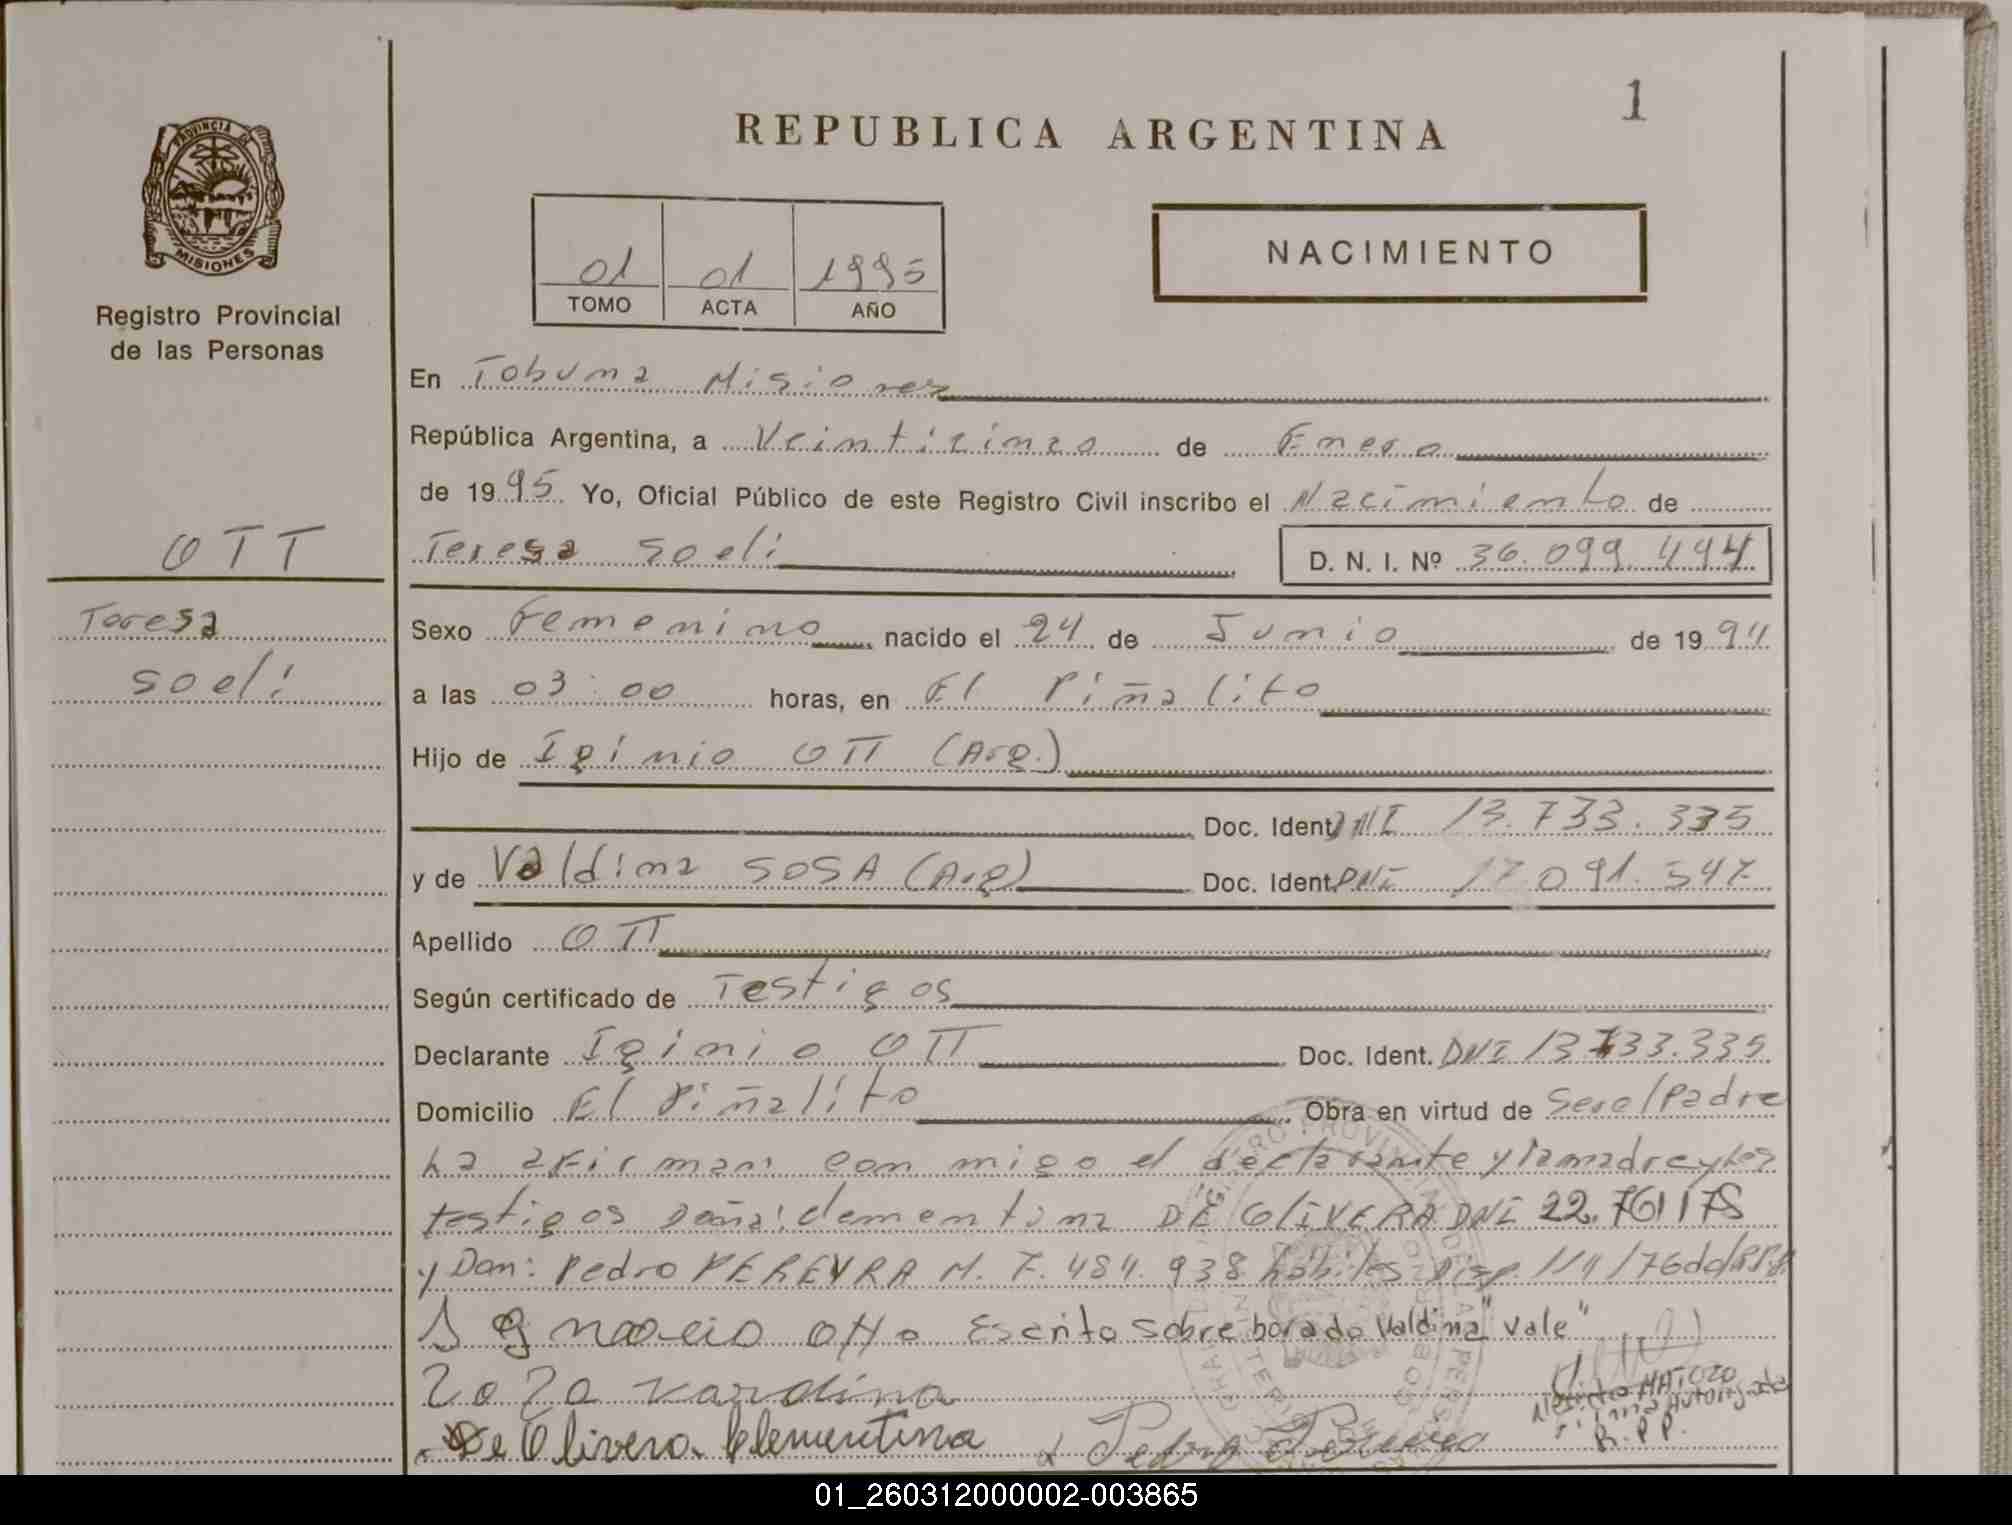 1
REPUBLICA ARGENTINA
PROVINCIA DE
MISIONES
Registro Provincial
de las Personas
01 01 1995
TOMO ACTA AÑO
NACIMIENTO
En Tobuna Misiones
República Argentina, a Veinticinco de Enero
de 1995 Yo, Oficial Público de este Registro Civil inscribo el Nacimiento de
OTT
Teresa Soeli D. N. I. Nº 36.099.494
Teresa
Soeli
Sexo Femenino nacido el 24 de Junio de 1994
a las 03:00 horas, en El Piñalito
Hijo de Iginio OTT (Arg.)
Doc. Ident. DNI 13.733.335
y de Valdina SOSA (Arg) Doc. Ident. DNI 17.091.547
Apellido OTT
Según certificado de Testigos
Declarante Iginio OTT Doc. Ident. DNI 13733.335
Domicilio El Piñalito Obra en virtud de Ser el Padre
La afirman con migo el declarante y la madre y los
testigos Doña: clementina DE OLIVERA DNI 22.761175
y Don: Pedro PEREYRA M. 7.484.938 hábiles Disp. 114/76
Escrito sobre borado Valdina "Vale"
De Olivera Clementina Pedro Pereira
MATOZO
Firma Autorizada
R.P.P.
01_260312000002-003865